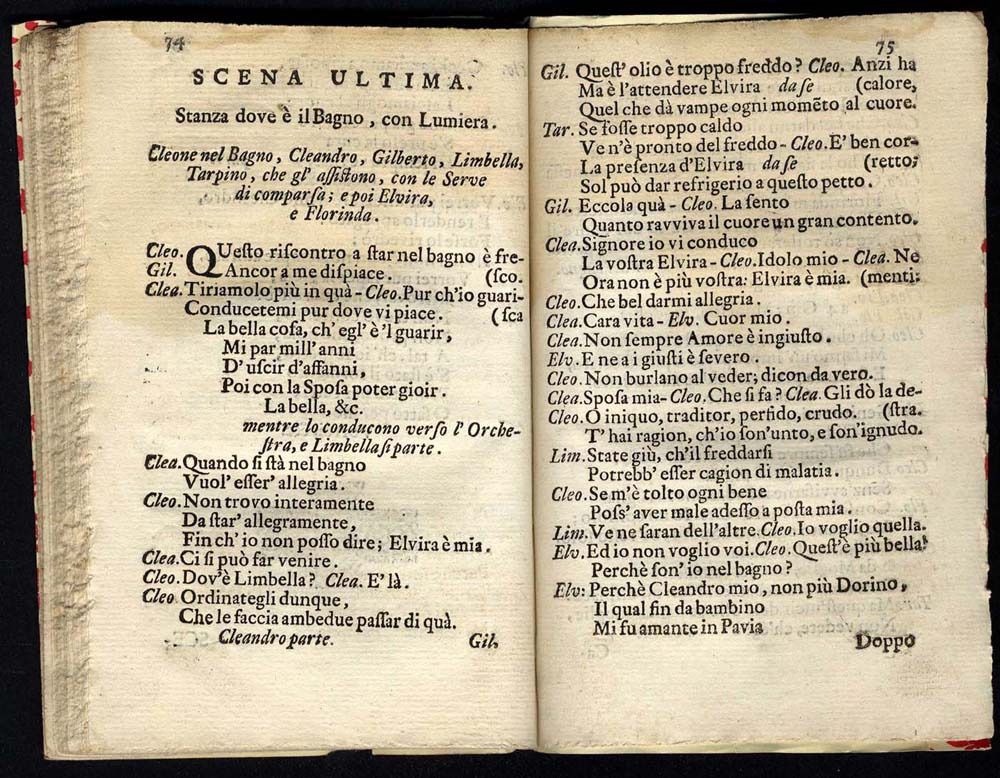 74
SCENA ULTIMA.
Stanza dove è il Bagno, con Lumiera.
Cleone nel Bagno, Cleandro, Gilberto, Limbella,
Tarpino, che gl' aſſiſtono, con le Serve
di comparſa; e poi Elvira,
e Florinda.
Cleo. QUeſto riſcontro a ſtar nel bagno è fre-
Gil. Ancor a me diſpiace. (ſco.
Clea. Tiriamolo più in quà - Cleo. Pur ch'io guari-
Conducetemi pur dove vi piace. (ſca
La bella coſa, ch' egl' è 'l guarir,
Mi par mill' anni
D' uſcir d'affanni,
Poi con la Spoſa poter gioir.
La bella, &c.
mentre lo conducono verſo l' Orche-
ſtra, e Limbella ſi parte.
Clea. Quando ſi ſtà nel bagno
Vuol' eſſer' allegria.
Cleo. Non trovo interamente
Da ſtar' allegramente,
Fin ch' io non poſſo dire; Elvira è mia.
Clea. Ci ſi può far venire.
Cleo. Dov'è Limbella? Clea. E' là.
Cleo. Ordinategli dunque,
Che le faccia ambedue paſſar di quà.
Cleandro parte. Gil.
75
Gil. Queſt' olio è troppo freddo? Cleo. Anzi ha
Ma è l'attendere Elvira da ſe (calore,
Quel che dà vampe ogni momẽto al cuore.
Tar. Se foſſe troppo caldo
Ve n'è pronto del freddo - Cleo. E' ben cor-
La preſenza d'Elvira da ſe (retto;
Sol può dar refrigerio a queſto petto.
Gil. Eccola quà - Cleo. La ſento
Quanto ravviva il cuore un gran contento.
Clea. Signore io vi conduco
La voſtra Elvira - Cleo. Idolo mio - Clea. Ne
Ora non è più voſtra: Elvira è mia. (menti:
Cleo. Che bel darmi allegria.
Clea. Cara vita - Elv. Cuor mio.
Clea. Non ſempre Amore è ingiuſto.
Elv. E ne a i giuſti è ſevero.
Cleo. Non burlano al veder; dicon da vero.
Clea. Spoſa mia - Cleo. Che ſi fa? Clea. Gli dò la de-
Cleo. O iniquo, traditor, perfido, crudo. (ſtra.
T' hai ragion, ch'io ſon'unto, e ſon'ignudo.
Lim. State giù, ch'il freddarſi
Potrebb' eſſer cagion di malatia.
Cleo. Se m'è tolto ogni bene
Poſſ' aver male adeſſo a poſta mia.
Lim. Ve ne ſaran dell'altre. Cleo. Io voglio quella.
Elv. Ed io non voglio voi. Cleo. Queſt'è più bella!
Perchè ſon' io nel bagno?
Elv: Perchè Cleandro mio, non più Dorino,
Il qual fin da bambino
Mi fu amante in Pavia
Doppo